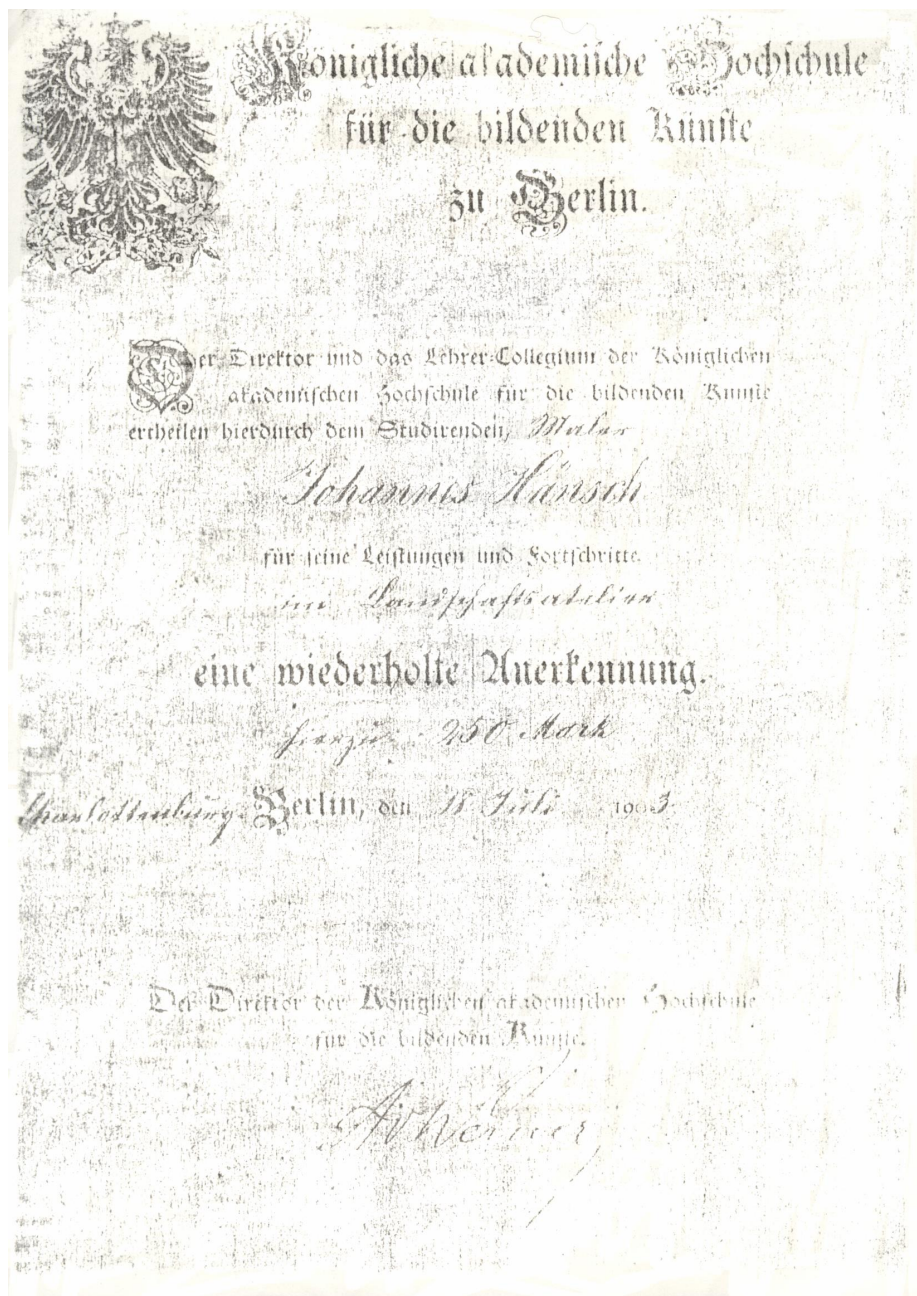 Königliche akademische Hochschule
für die bildenden Künste
zu Berlin.
Der Direktor und das Lehrer-Collegium der Königlichen
akademischen Hochschule für die bildenden Künste
ertheilen hierdurch dem Studirenden, Maler
Johannes Hänsch
für seine Leistungen und Fortschritte
im Landschaftsatelier
eine wiederholte Anerkennung.
hierzu: 250 Mark
Charlottenburg-Berlin, den Juli 1903
Der Direktor der Königlichen akademischen Hochschule
für die bildenden Künste.
AvWerner